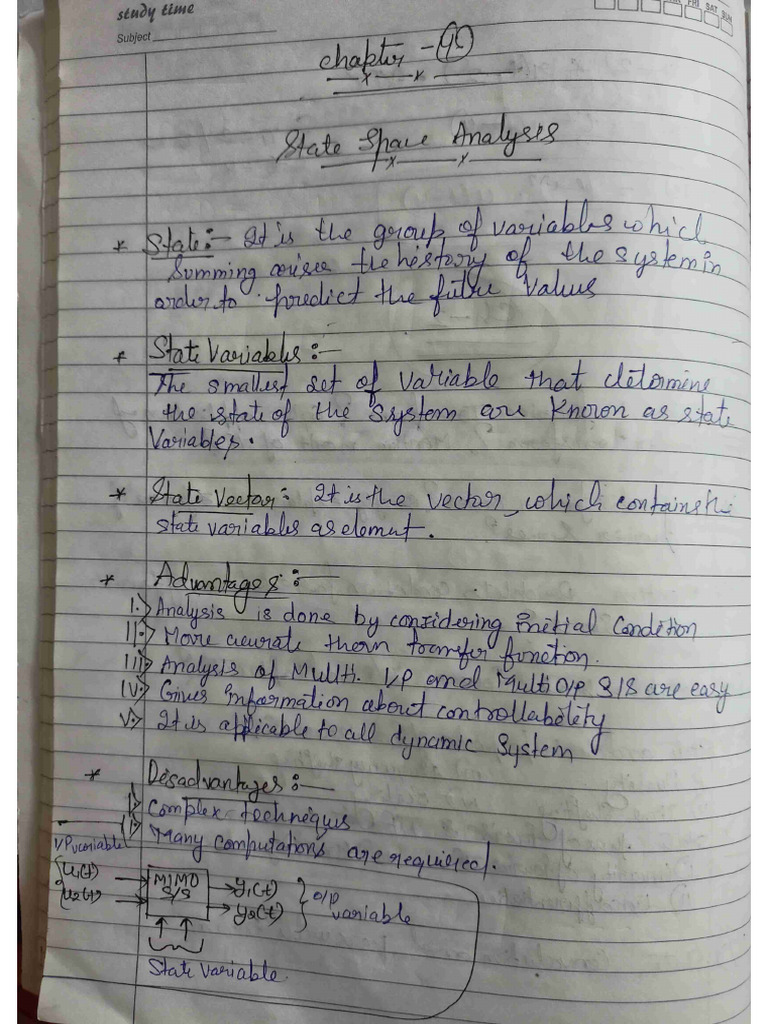 study time
FRI SAT SUN
Subject
Chapter -
State Space Analyses
* State:- It is the group of variables which
Summing arises the history of the system in
order to predict the futre values
* State Variables:-
The smallest set of variable that determine
the state of the system are known as state
Variables.
* State Vector: It is the vector, which contains the
state variables as elemnt.
* Advantages:-
I.) Analysis is done by considering initial Condition
II.) More acurate them transfer function.
III) Analysis of Multi. I/P and Multi O/p S/S are easy
IV.) Gives Information about controllability
V.) It is applicable to all dynamic System
* Disadvantages:-
Complex techniques
Many computations are required.
I/P variable
u₁(t) MIMO y₁(t) o/p
u₂(t) S/S y₂(t) variable
State variable